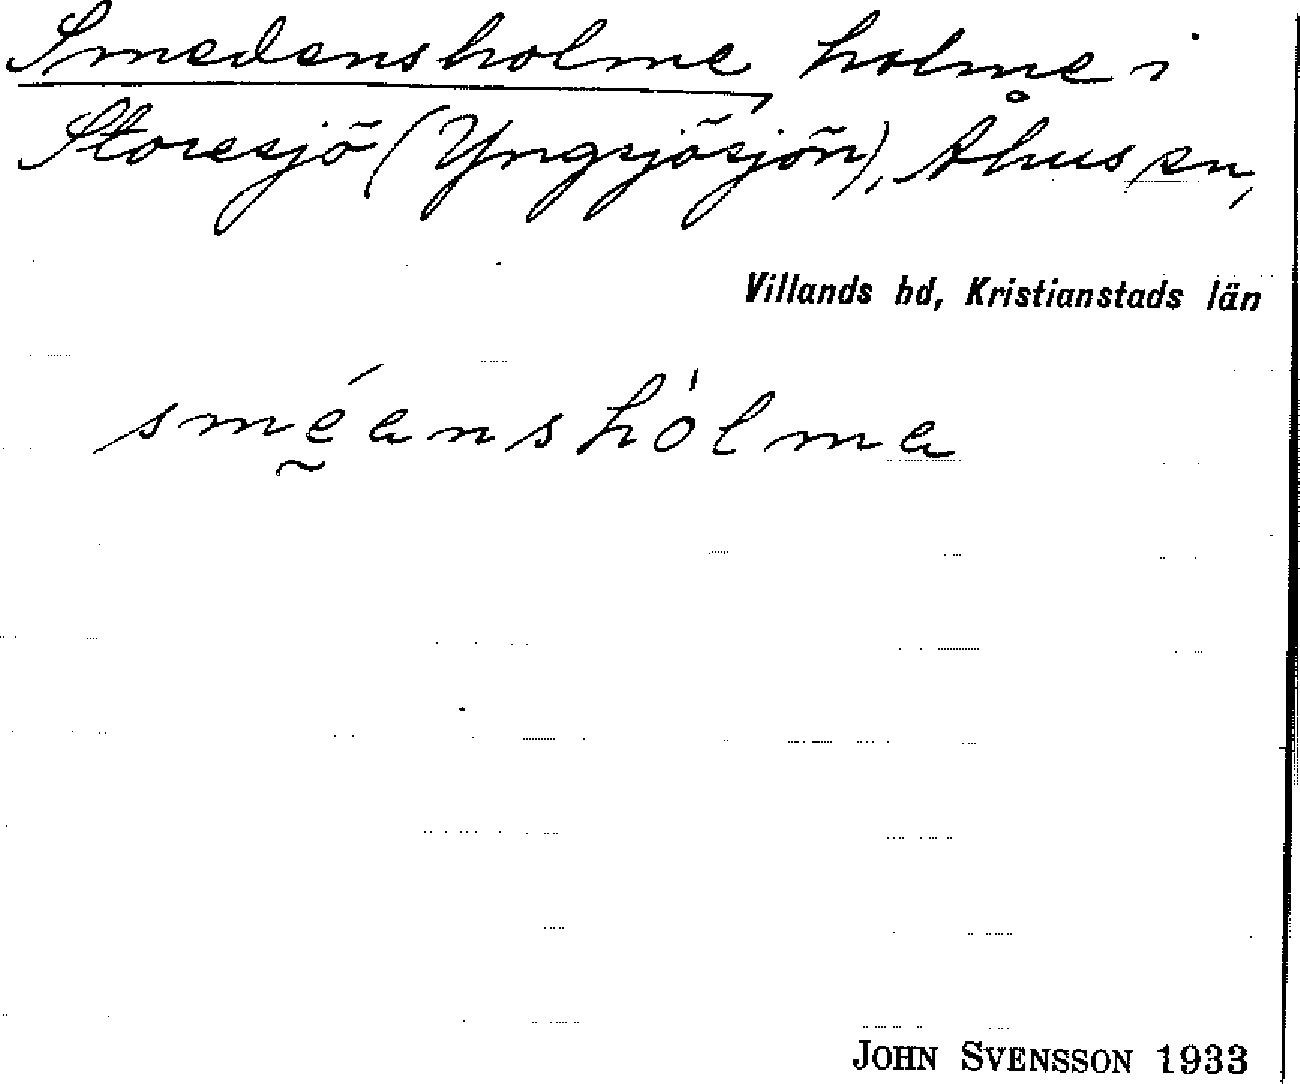 Smedensholme, holme i
Storesjö (Yngsjösjön), Åhus sn,
Villands hd, Kristianstads län
sméanshòlma
JOHN SVENSSON 1933